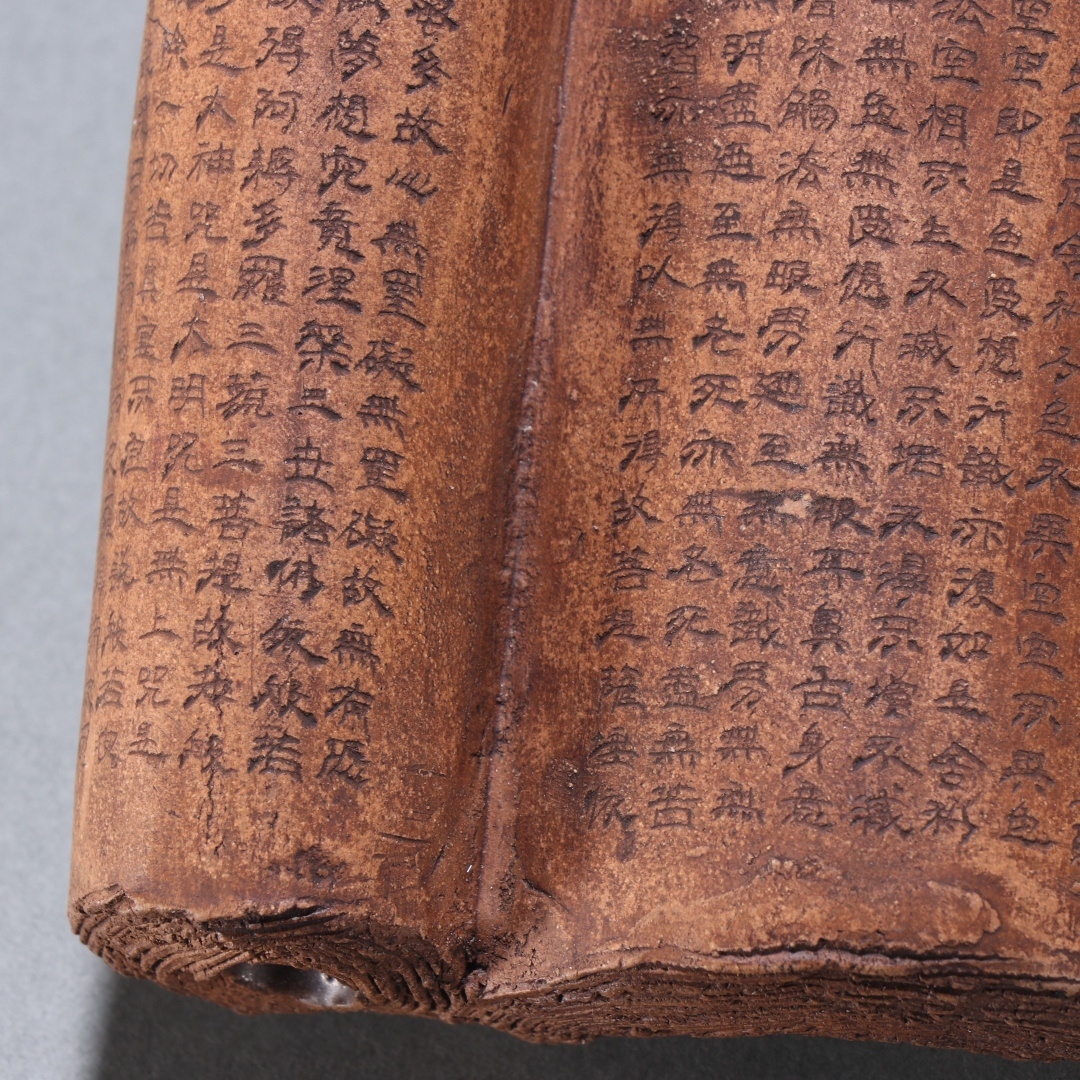 苦厄舍利子色不異空空不異色
空空即是色受想行識亦復如是舍利
法空相不生不滅不垢不淨不增不減
中無色無受想行識無眼耳鼻舌身意
香味觸法無眼界乃至無意識界無無
無明盡乃至無老死亦無老死盡無苦
智亦無得以無所得故菩提薩埵依
多故心無罣礙無罣礙故無有恐
夢想究竟涅槃三世諸佛依般若
故得阿耨多羅三藐三菩提故知般
多是大神咒是大明咒是無上咒是
除一切苦真實不虛故說般若波